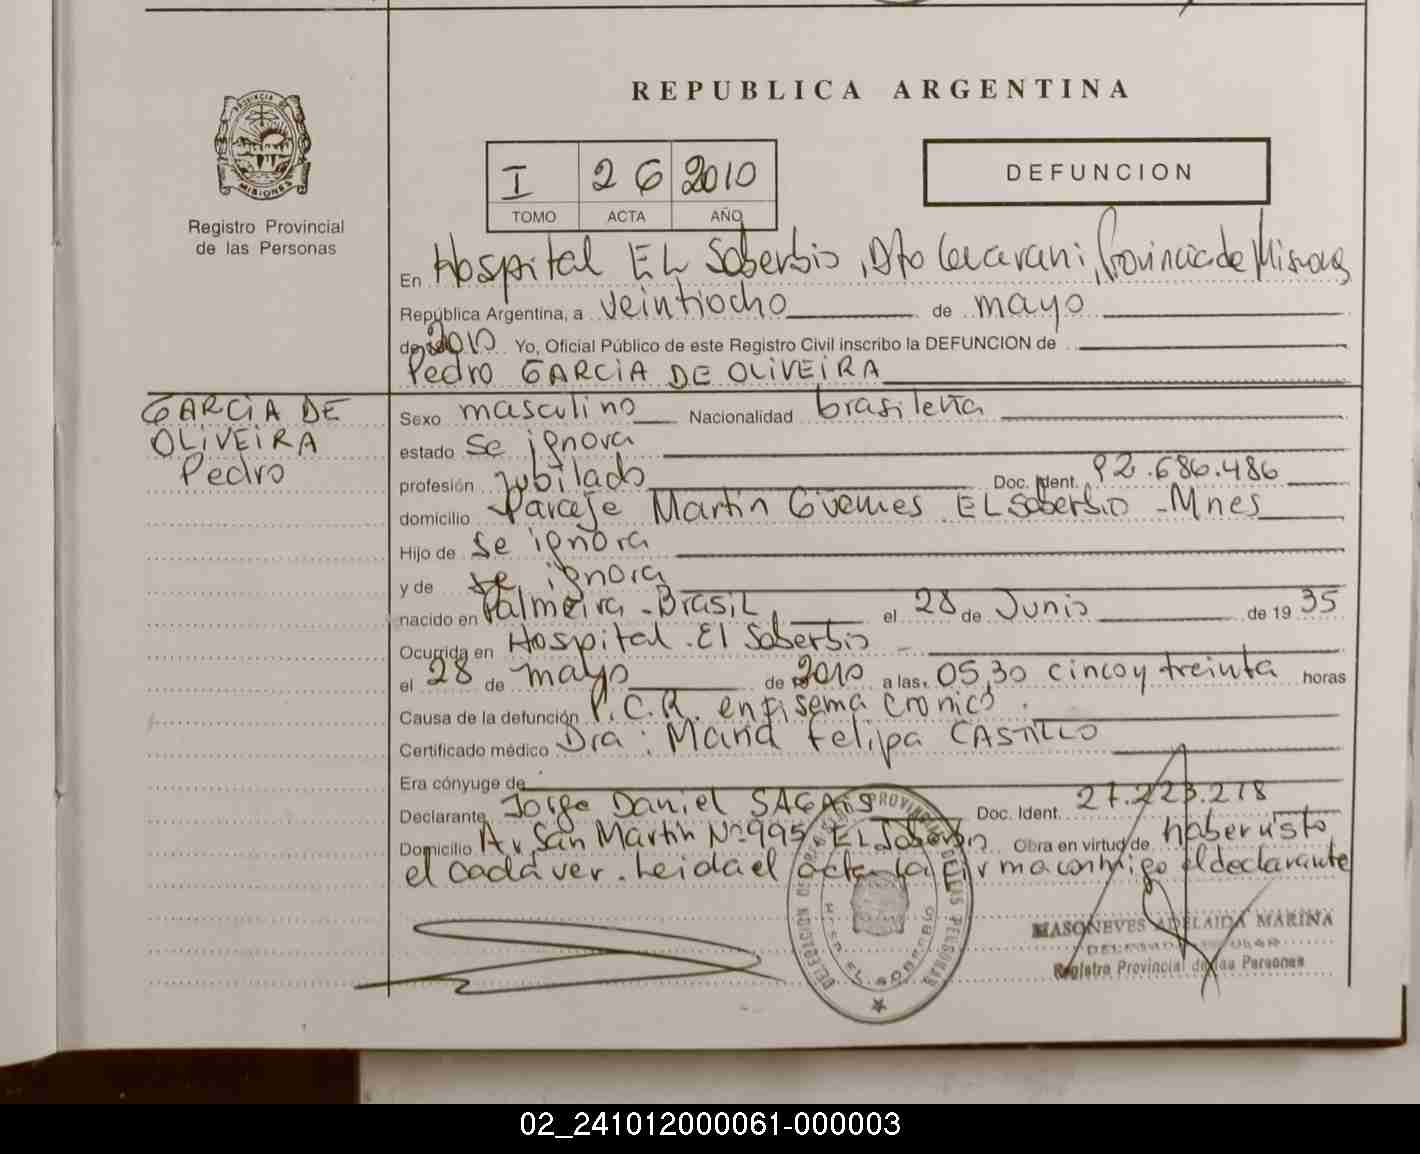 REPUBLICA ARGENTINA
PROVINCIA DE
MISIONES
Registro Provincial
de las Personas
I 26 2010
TOMO ACTA AÑO
DEFUNCION
En Hospital EL Soberbio, Dto Guarani, Provincia de Misiones
República Argentina, a veintiocho de mayo
de 2010 Yo, Oficial Público de este Registro Civil inscribo la DEFUNCION de
Pedro GARCIA DE OLIVEIRA
GARCIA DE
OLIVEIRA
Pedro
Sexo masculino Nacionalidad brasileña
estado se ignora
profesión Jubilado Doc. Ident. 92.686.486
domicilio Paraje Martin Güemes EL Soberbio - Mnes
Hijo de se ignora
y de se ignora
nacido en Palmeira - Brasil el 28 de Junio de 19 35
Ocurrida en Hospital El Soberbio
el 28 de mayo de 2010 a las 05,30 cinco y treinta horas
Causa de la defunción P.C.R. enfisema cronico.
Certificado médico Dra: Maria Felipa CASTILLO
Era cónyuge de
Declarante Jorge Daniel Doc. Ident. 27.223.218
Domicilio Av San Martin Nº 995 EL Soberbio Obra en virtud de haber visto
el cadáver. Leida el acta la firma conmigo el declarante
DELEGACION PROVINCIAL DE LAS PERSONAS
EL SOBERBIO
MASONEVES ADELAIDA MARINA
DELEGADA TITULAR
Registro Provincial de las Personas
02_241012000061-000003